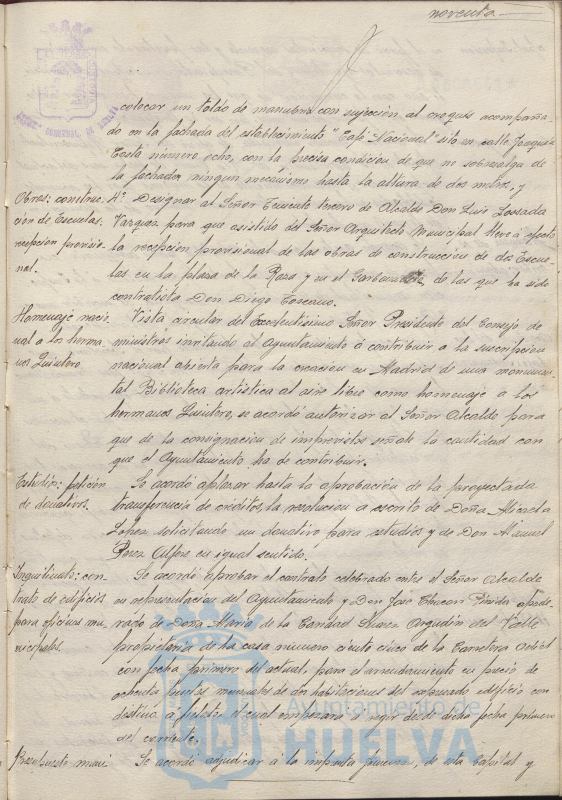 noventa
colocar un toldo de manubrio con sujeción al croquis acompaña-
do en la fachada del establecimiento "Café Nacional" sito en calle Joaquin
Costa número ocho, con la precisa condición de que no sobresalga de
la fachada ningun mecanismo hasta la altura de dos metros, y
Obras: construc-
ción de Escuelas.
recepción provisio-
nal.
4º Designar al Señor Teniente tercero de Alcalde Don Luis Lossada
Vazquez para que asistido del Señor Arquitecto Municipal lleve á efecto
la recepción provisional de las obras de construcción de dos Escue-
las en la plaza de la Raza y en el de las que ha sido
contratista Don Diego Toscano.
Homenaje nacio-
nal a los herma-
nos Quintero
Vista circular del Excelentisimo Señor Presidente del Consejo de
ministros invitando al Ayuntamiento á contribuir a la suscripcion
nacional abierta para la creacion en Madrid de una monumen-
tal Biblioteca artistica al aire libre como homenaje a los
hermanos Quintero, se acordó autorizar al Señor Alcalde para
que de la consignacion de imprevistos señale la cantidad con
que el Ayuntamiento ha de contribuir.
Estudios: petición
de donativos.
Se acordó aplazar hasta la aprobación de la proyectada
transferencia de creditos, la resolucion a escrito de Doña Micaela
Lopez solicitando un donativo para estudios y de Don Manuel
Perez en igual sentido.
Inquilinato: con-
trato de edificios
para oficinas mu-
nicipales.
Se acordó aprobar el contrato celebrado entre el Señor Alcalde
en representacion del Ayuntamiento y Don José apode-
rado de Doña Maria de la Suarez Argudin del Valle
propietaria de la casa número ciento cinco de la Carretera Odiel
con fecha primero del actual, para el arrendamiento en precio de
ochenta pesetas mensuales de dos habitaciones del expresado edificio con
destino a fielato el cual empezará a regir desde dicha fecha primero
del corriente.
Presupuesto muni-
Se acordó adjudicar a la imprenta de esta Capital y
Ayuntamiento de
HUELVA